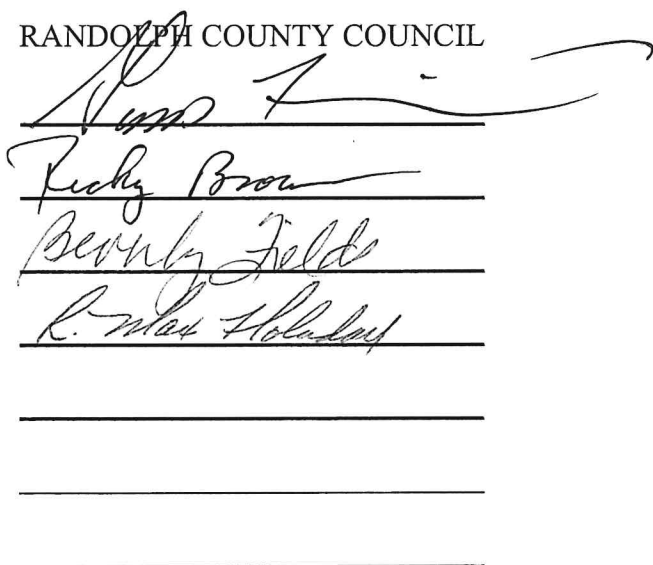 RANDOLPH COUNTY COUNCIL
Ricky Brown
Beverly Fields
R. Max Holaday